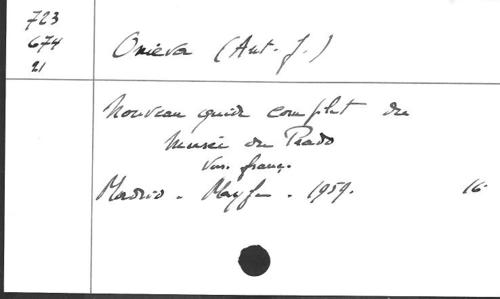 723
674
21
Onieva (Ant. J.)
Nouveau guide complet du
Musée du Prado
Vers. franç.
Madrid. Mayfe. 1959. 16°